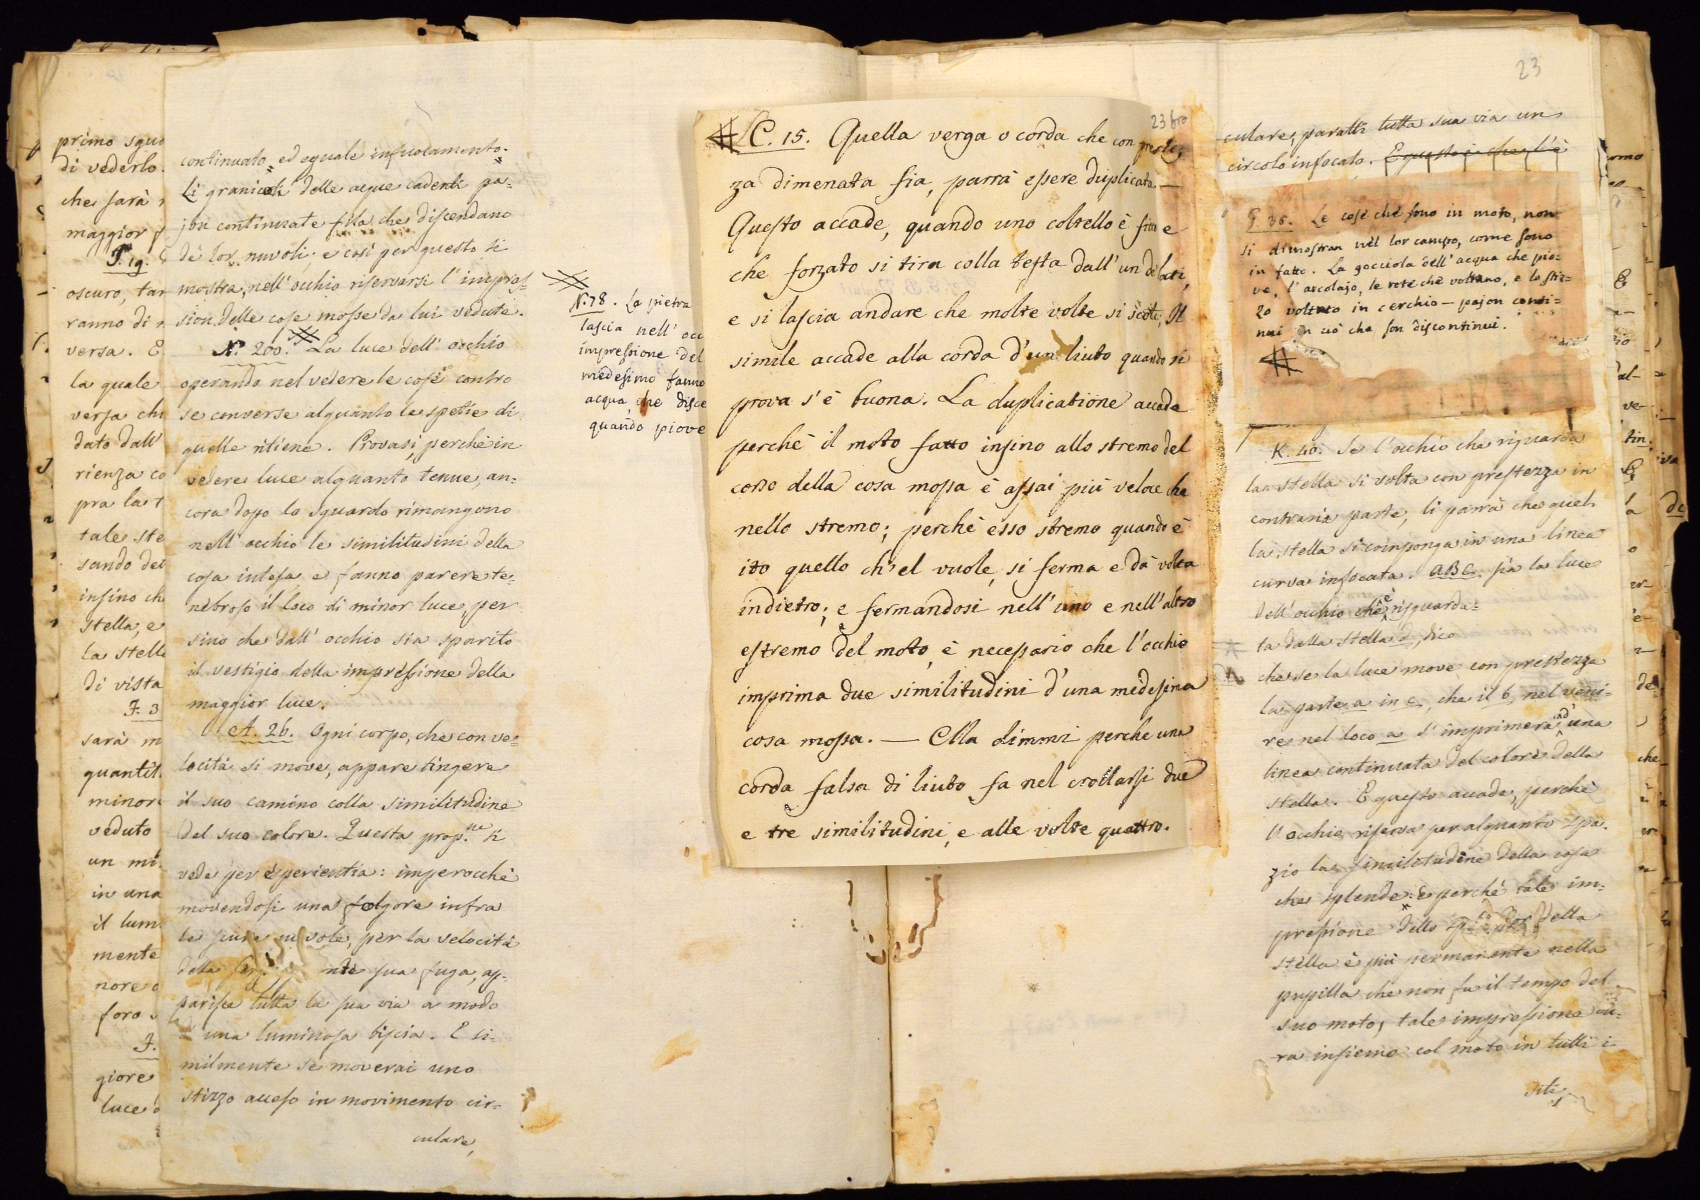 primo sgu
di vederlo.
che sarà
maggior
F. 19.
oscuro, tan
ranno di
versa. E
la quale
versa che
dato dall'
rienza co
pra la t
tale ste
sando del
insino ch
stella, e
la stelle
di vista
F. 3
sarà m
quantit
minor
veduto
un mi
in una
il lum
mente
nore
foro
F.
giore
luce
continuato, ed eguale infuocamento.
Li granicoli delle acque cadenti pa-
jon continuate fila che discendano
de' lor nuvoli; e così per questo si
mostra, nell' occhio riservarsi l' impres-
sion delle cose mosse da lui vedute.
N.º 200. La luce dell' occhio
operando nel vedere le cose contro
se converse alquanto le spetie di
quelle ritiene. Provasi, perchè in
vedere luce alquanto tenue, an-
cora dopo lo sguardo rimangono
nell' occhio le similitudini della
cosa intesa, e fanno parere te-
nebroso il loco di minor luce, per
sino che dall' occhio sia sparito
il vestigio della impressione della
maggior luce.
A. 26. Ogni corpo, che con ve-
locità si move, appare tingere
il suo camino colla similitudine
del suo colore. Questa prop.ne si
vede per esperientia: imperocchè
movendosi una folgore infra
le pure nuvole, per la velocità
della sua fuga, ap-
parisce tutta la sua via a modo
una luminosa biscia. E si-
milmente se moverai uno
stizzo acceso in movimento cir-
culare,
N.º 78. La pietra
lascia nell' occ
impressione del
medesimo fanno
acqua, che disce
quando piove
23 bro
C. 15. Quella verga o corda che con prestez
za dimenata sia, parrà essere duplicata. —
Questo accade, quando uno coltello è fitto e
che forzato si tira colla testa dall' un de lati,
e si lascia andare che molte volte si scoti, Il
simile accade alla corda d'un liuto quando si
prova s'è buona. La duplicatione accade
perchè il moto fatto insino allo stremo del
corso della cosa mossa è assai più veloce che
nello stremo; perchè esso stremo quando è
ito quello ch'el vuole, si ferma e dà volta
indietro; e fermandosi nell' uno e nell' altro
estremo del moto, è necessario che l'occhio
imprima due similitudini d'una medesima
cosa mossa. — Ella dimmi perchè una
corda falsa di liuto fa nel crollarsi due
e tre similitudini, e alle volte quattro.
23
culare, paratti tutta sua via un
circolo infocato. E questo è che l'è
G. 36. Le cose che sono in moto, non
si dimostran nel lor campo, come sono
in fatto. La gocciola dell' acqua che pio-
ve, l' arcolajo, le rote che voltano, e lo stiz-
zo voltato in cerchio — pajon conti-
nui in ciò che son discontinui.
K. 40. Se l'occhio che riguarda
la stella si volta con prestezza in
contraria parte, li parrà che quel-
la stella si componga in una linea
curva infocata. ABC sia la luce
dell' occhio che è risguarda-
ta dalla stella d, dico
che se la luce move con prestezza
la parte a in c, che il b, nel veni-
re nel loco a s'imprimerà ad una
linea continuata del colore della
stella. E questo accade, perchè
l' occhio riserva per alquanto spa-
zio la similitudine della cosa
che splende: e perchè tale im-
pressione dello splendor della
stella è più permanente nella
pupilla che non fu il tempo del
suo moto, tale impressione du-
ra insieme col moto in tutti i
siti